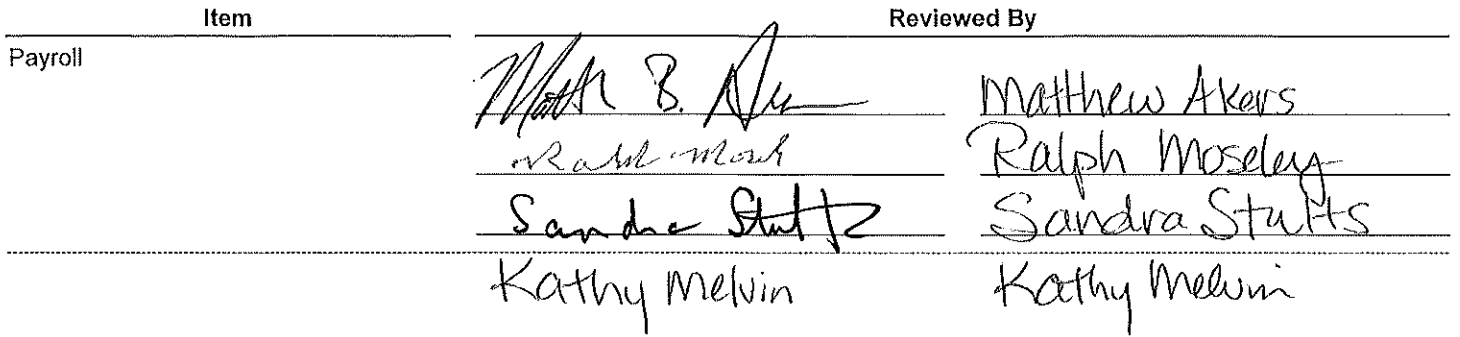 Item Reviewed By
Payroll
Matth B. Matthew Akers
Ralph Moseley
Sandra Stutts Sandra Stutts
Kathy Melvin Kathy Melvin